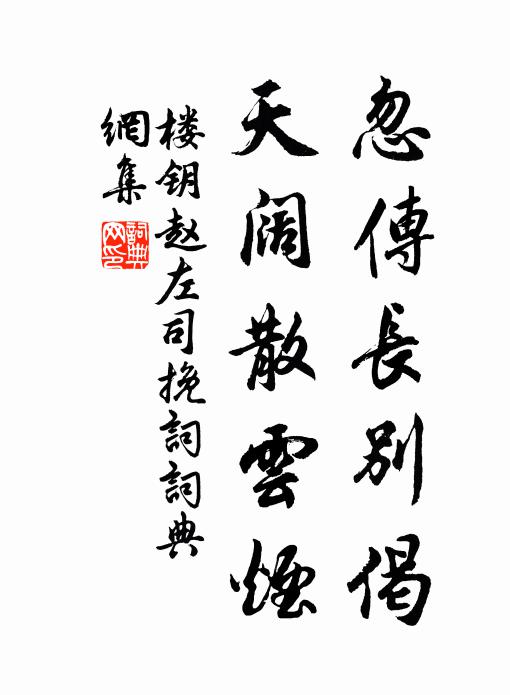 忽傳長別偈
天阔散雲煙
楼钥赵左司挽詞詞典
網集
詞典
网印